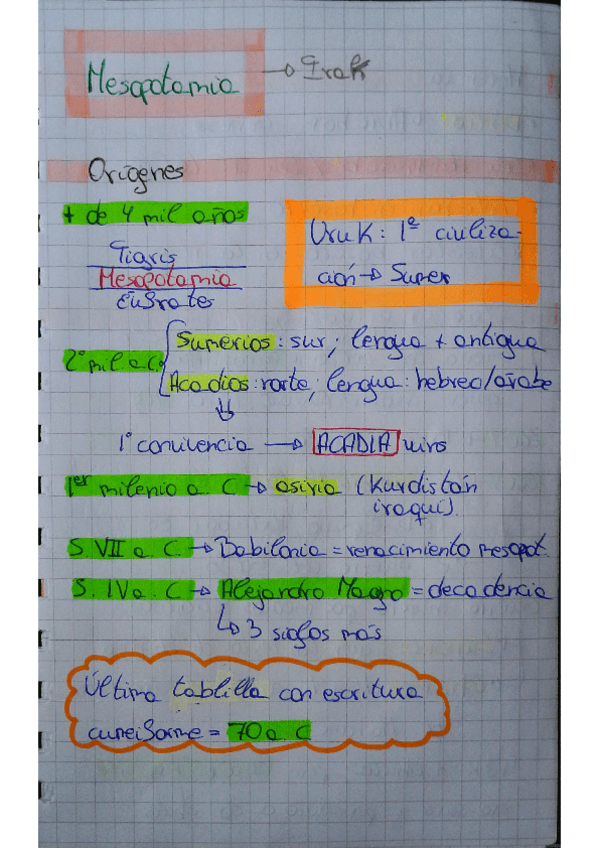 Mesopotamia → Irak
Orígenes
+ de 4 mil años
Tigris
Mesopotamia
Eúfrates
Uruk: 1ª civiliza-
ción → Sumer
2º mil a.C.
Sumerios: sur; lengua + antigua
Acadios: norte; lengua: hebreo/árabe
1º convivencia → ACADIA
1er milenio a. C → asiria (Kurdistán
iraquí).
S. VII a. C. → Babilonia = renacimiento mesopot.
S. IV a. C → Alejandro Magno = decadencia
↳ 3 siglos más
Última tablilla con escritura
cuneiforme = 70 a. C